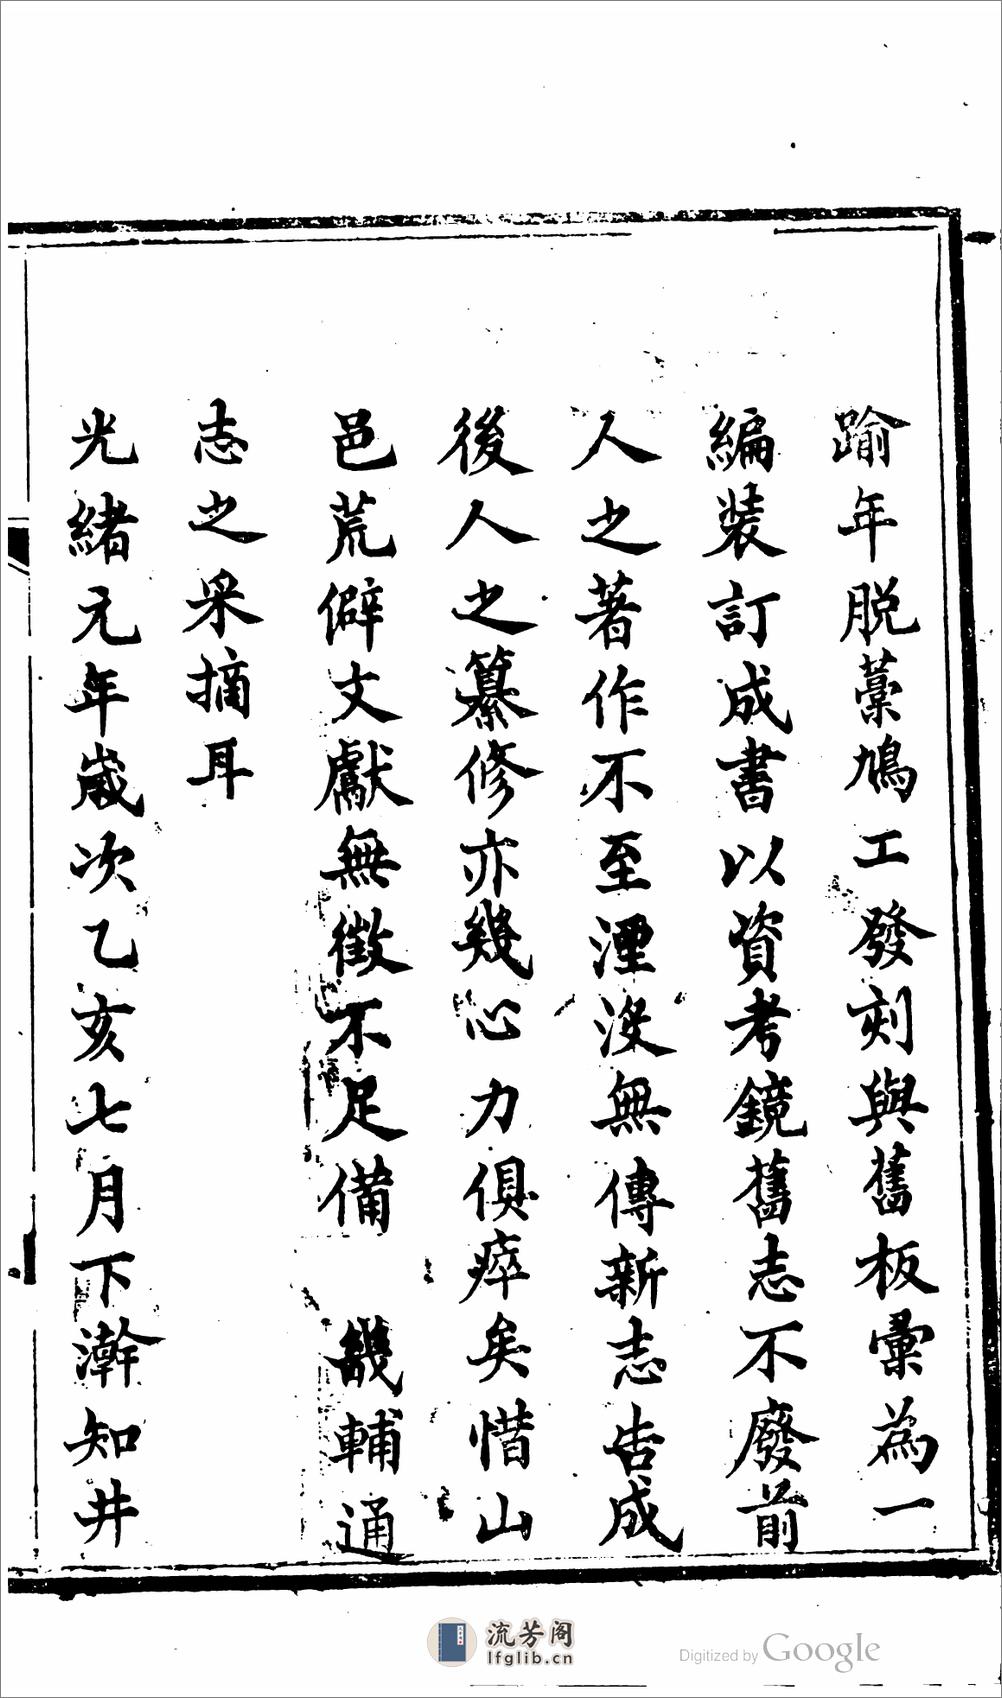 踰年脱藁鳩工發刻與舊板彙為一
編裝訂成書以資考鏡舊志不廢前
人之著作不至湮没無傳新志告成
後人之纂修亦幾心力俱瘁矣惜山
邑荒僻文獻無徵不足備　畿輔通
志之采摘耳
光緒元年歲次乙亥七月下澣知井
流芳阁
lfglib.cn
Digitized by Google